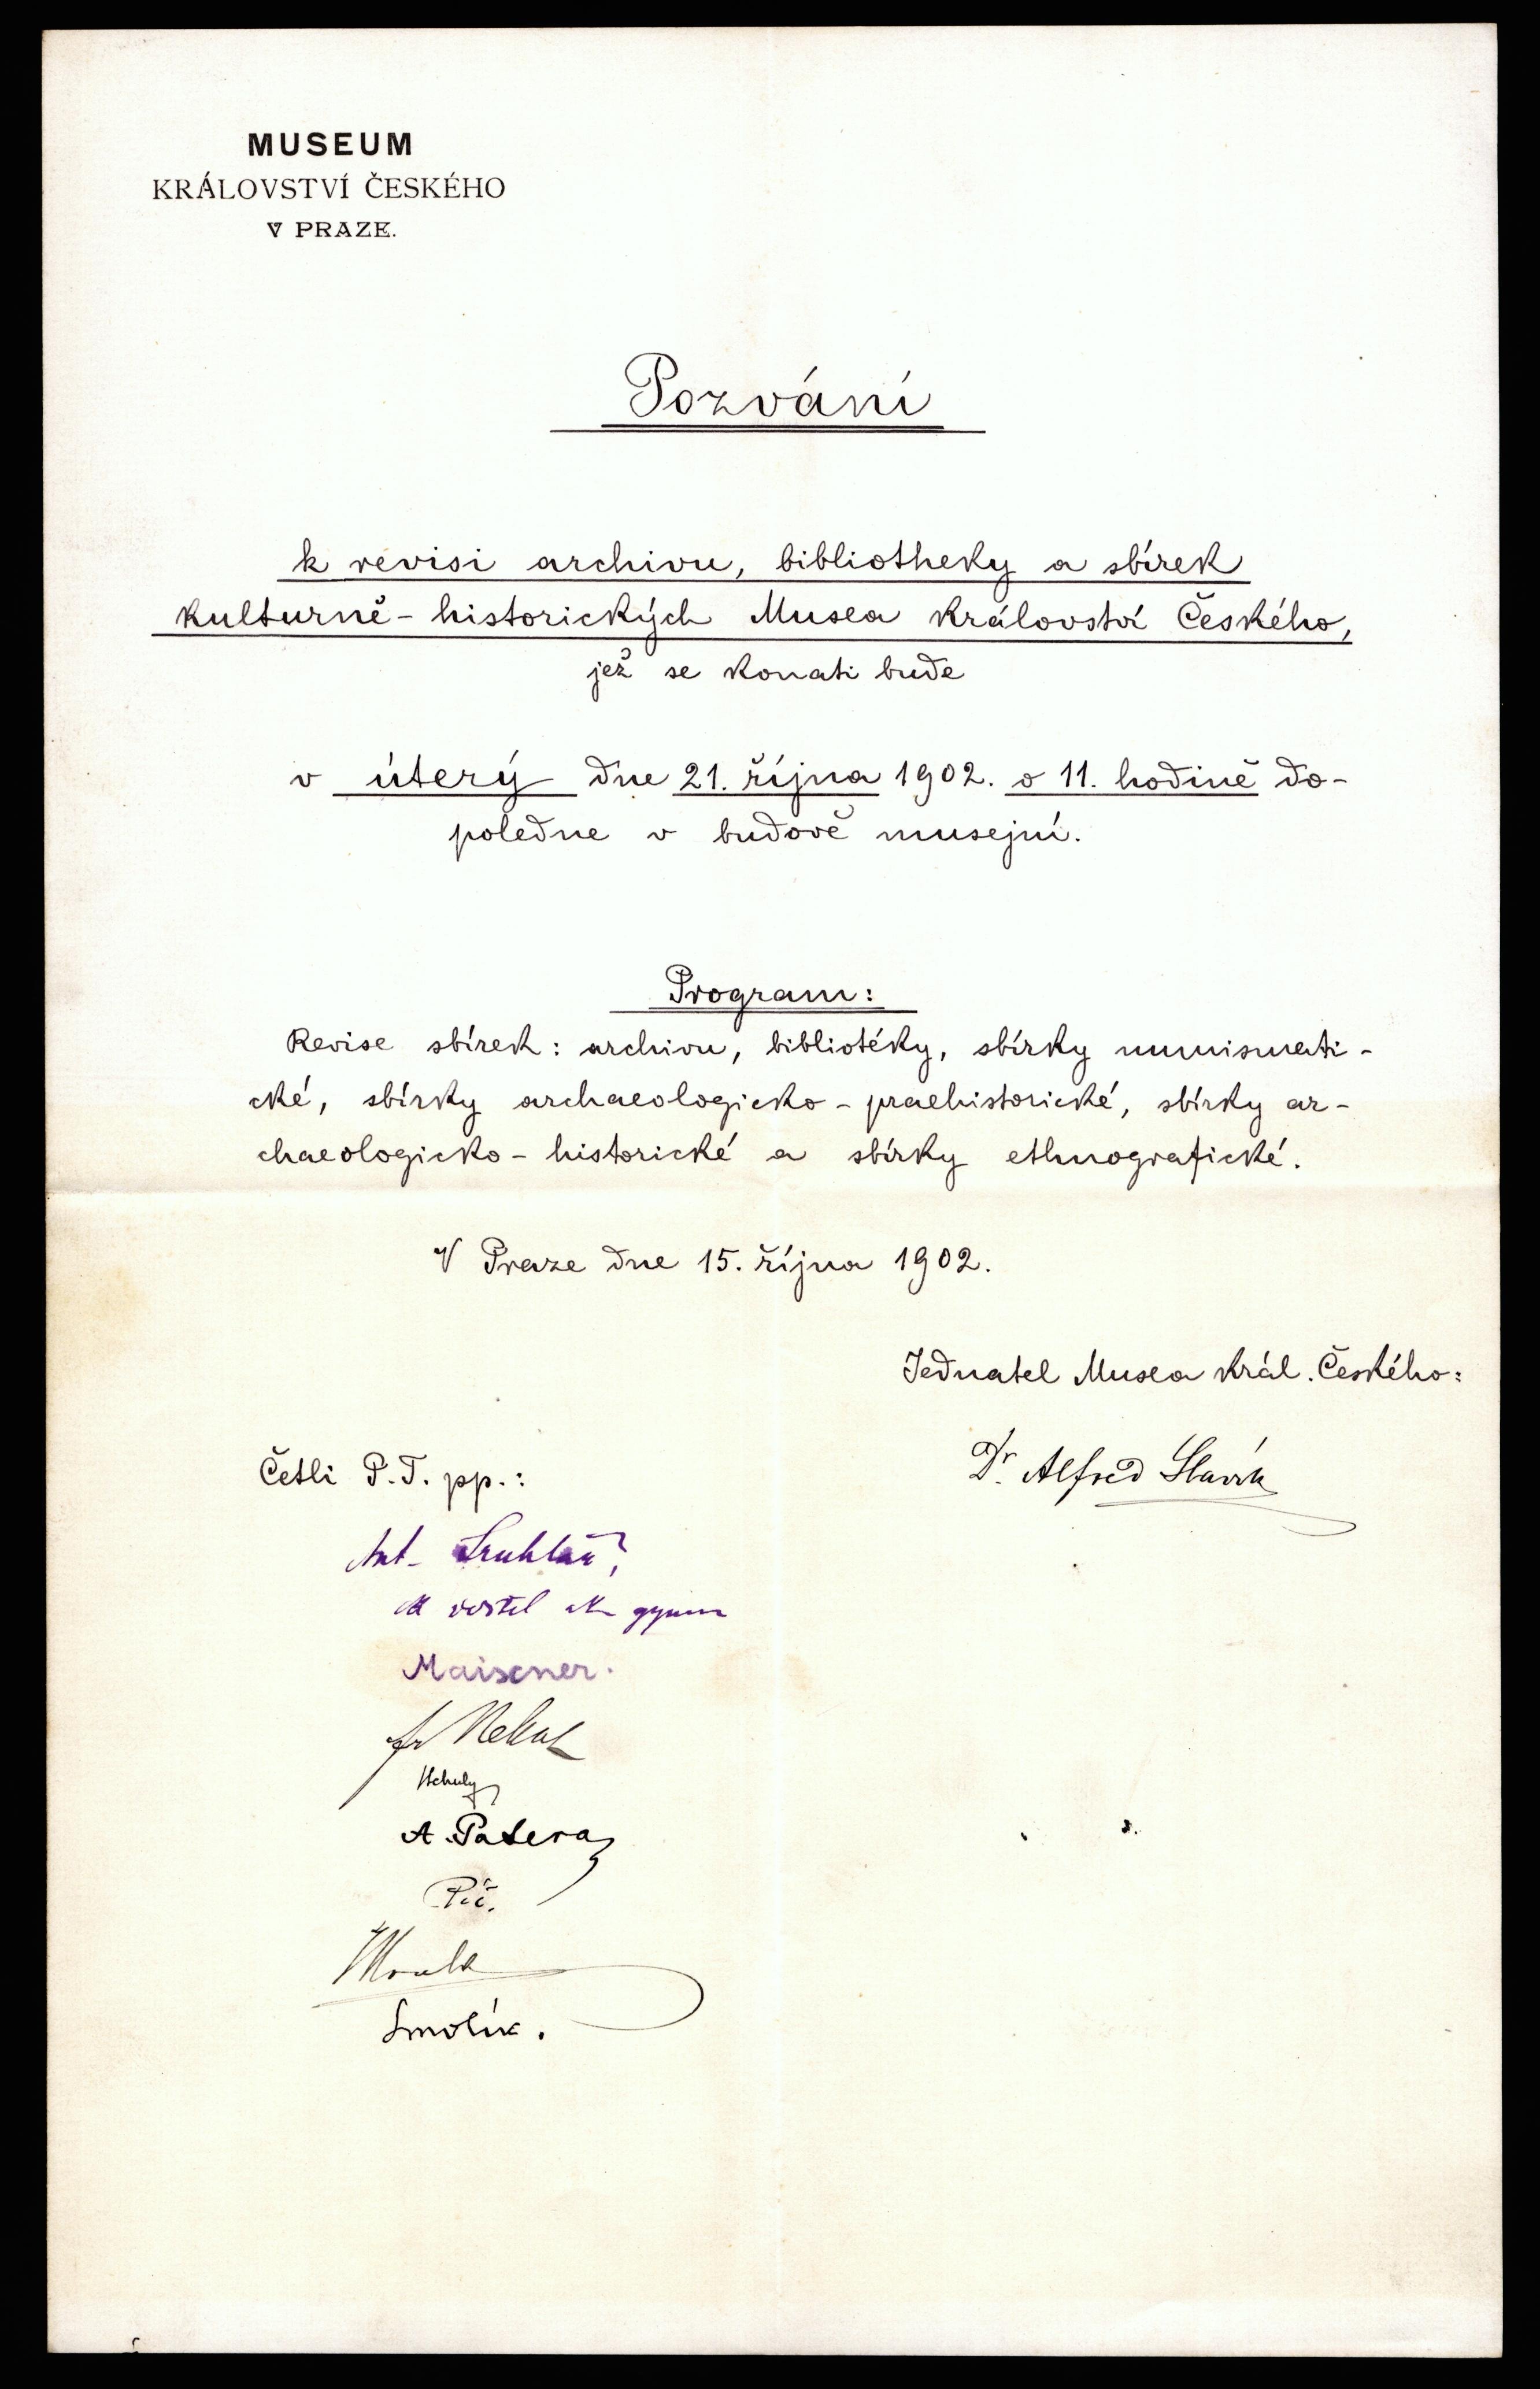 MUSEUM
KRÁLOVSTVÍ ČESKÉHO
V PRAZE.
Pozvání
k revisi archivu, bibliotheky a sbírek
kulturně-historických Musea království Českého,
jež se konati bude
v úterý dne 21. října 1902. o 11. hodině do-
poledne v budově musejní.
Program:
Revise sbírek: archivu, bibliotéky, sbírky numismati-
cké, sbírky archaeologicko-praehistorické, sbírky ar-
chaeologicko-historické a sbírky ethnografické.
V Praze dne 15. října 1902.
Jednatel Musea král. Českého:
Dr. Alfred Slavík
Četli P.T. pp.:
Ant. Truhlář,
Maisener.
A. Patera
Píč.
Smolík.